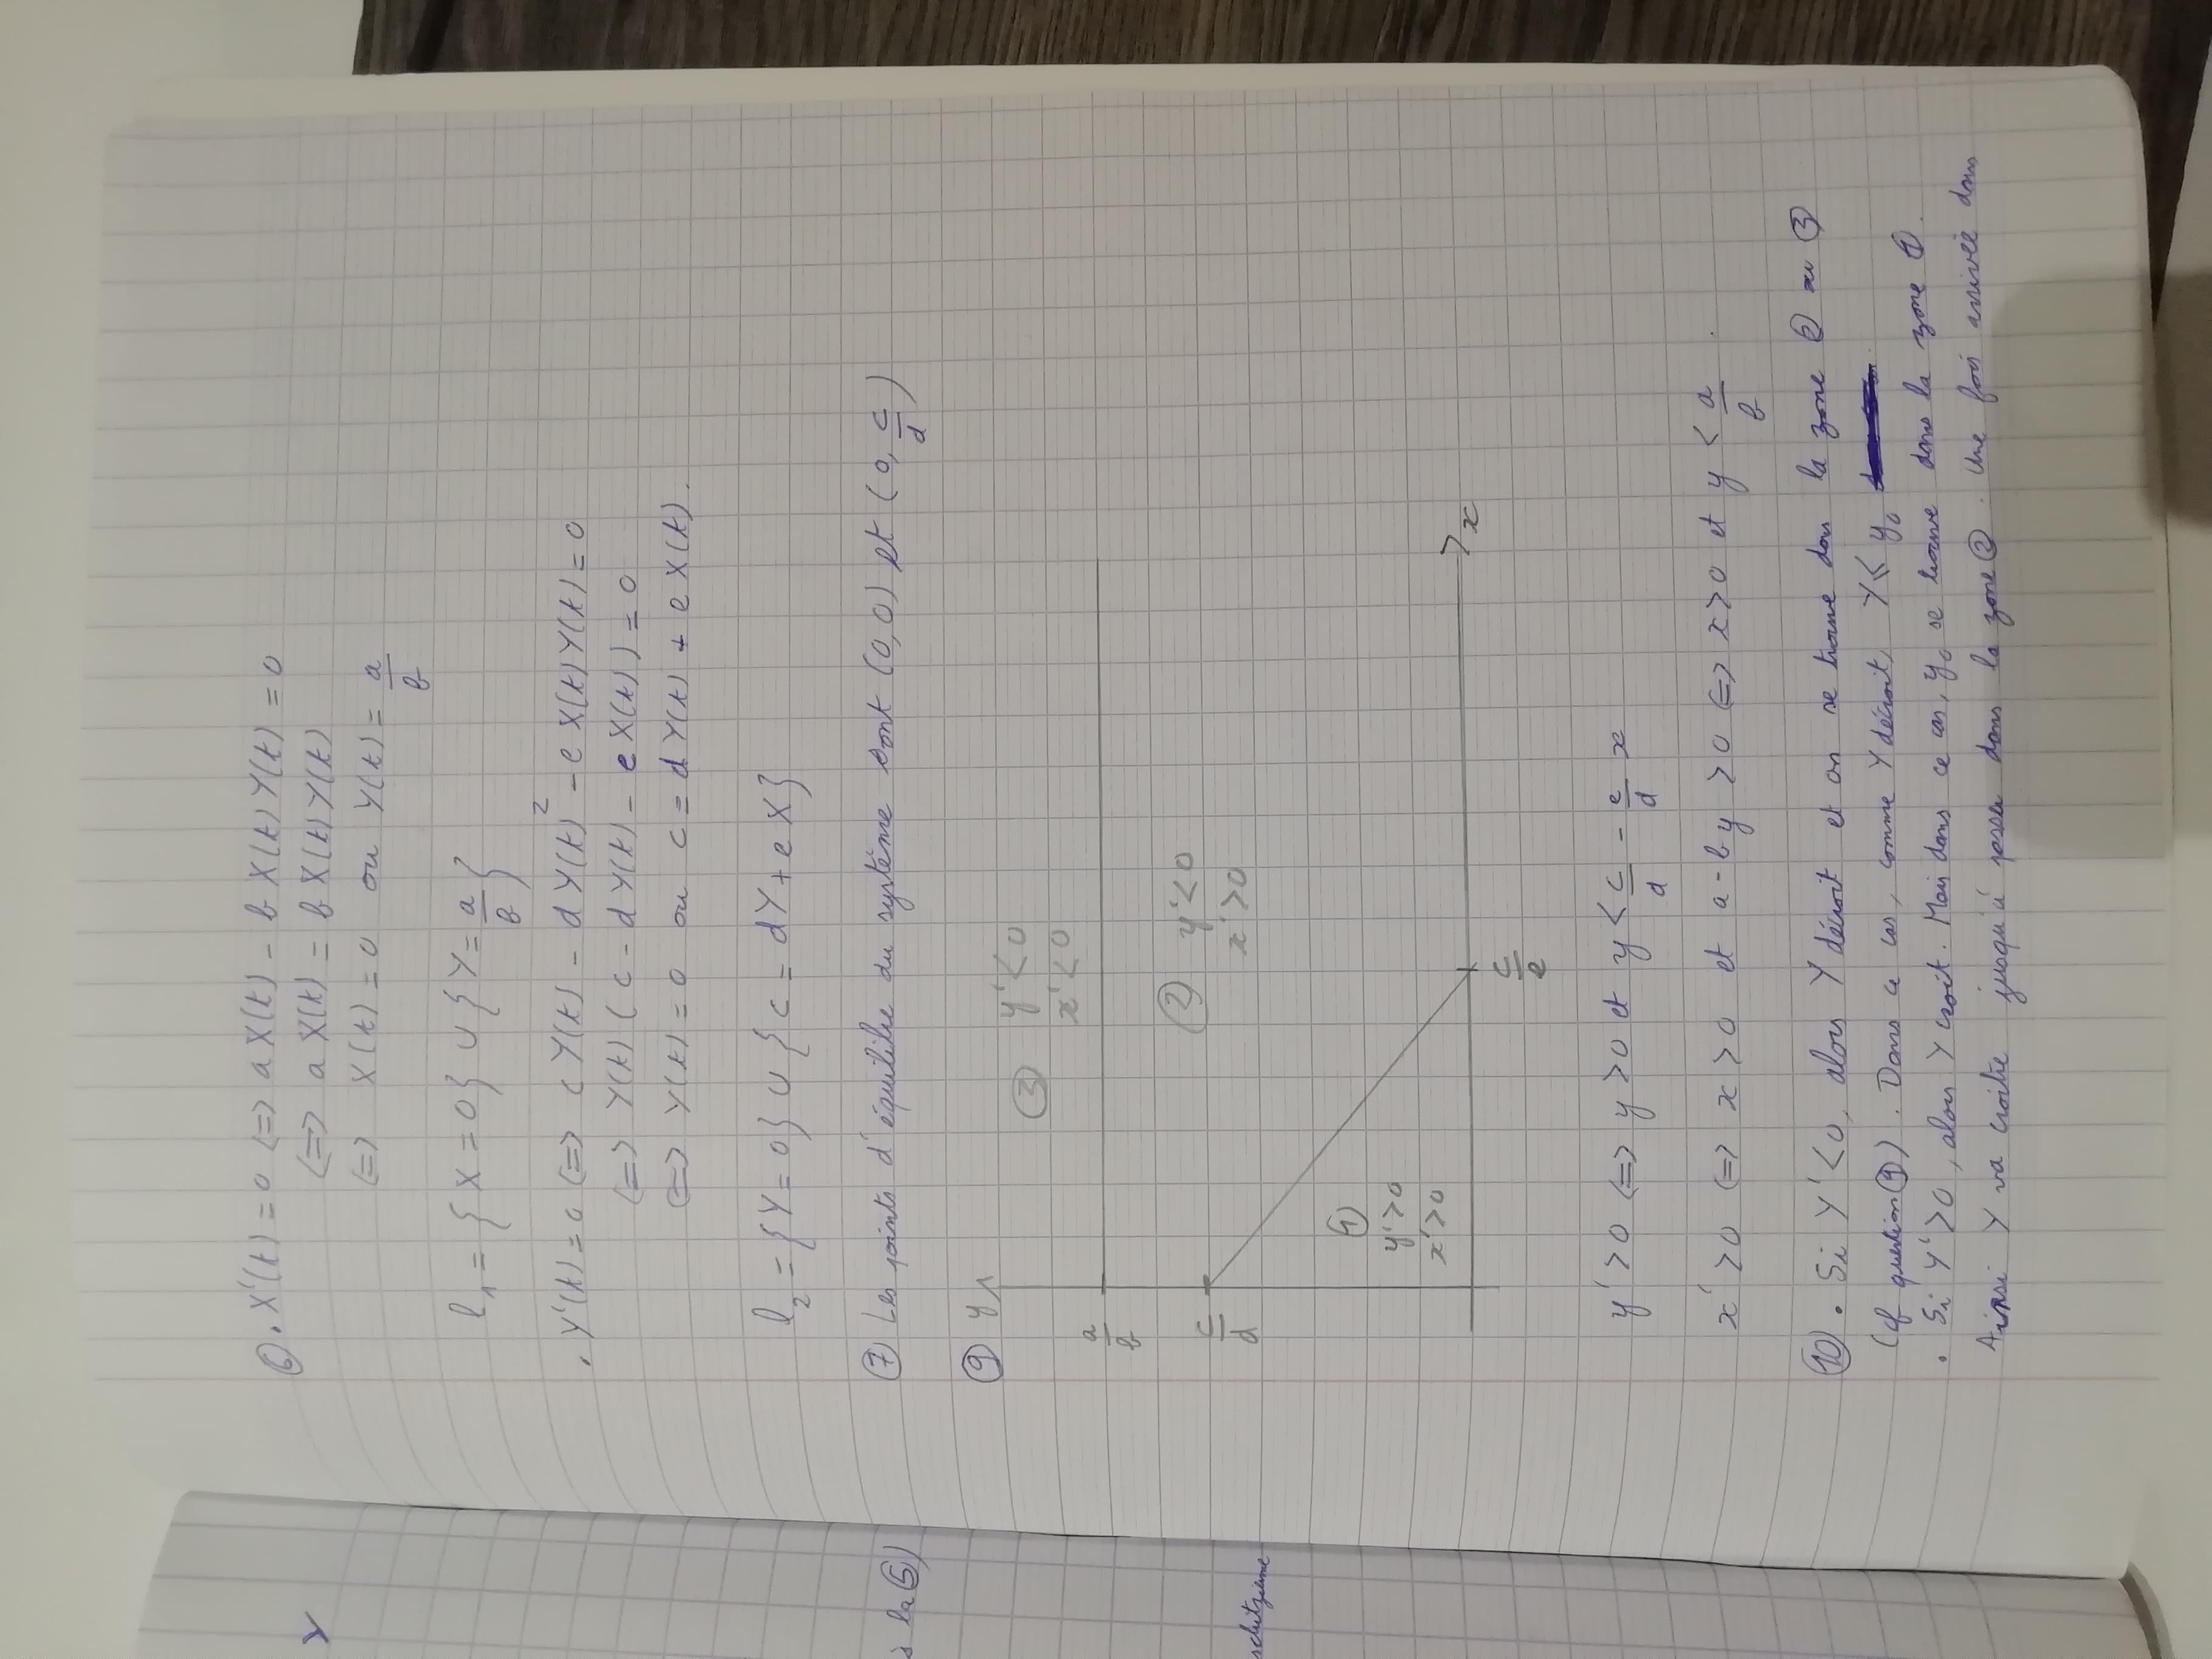 ⑥. X'(t) = 0 (=> a X(t) - b X(t) Y(t) = 0
(=> a X(t) = b X(t) Y(t)
(=> X(t) = 0 ou Y(t) = a/b
l₁ = { X = 0 } ∪ { Y = a/b }
. Y'(t) = 0 (=> c Y(t) - d Y(t)² - e X(t) Y(t) = 0
(=> Y(t) ( c - d Y(t) - e X(t) ) = 0
(=> Y(t) = 0 ou c = d Y(t) + e X(t).
l₂ = { Y = 0 } ∪ { c = dY + e X }
⑦ Les points d'équilibre du système sont (0,0) et (0, c/d)
⑨ y
③ y' < 0
x' < 0
a/b
② y' < 0
x' > 0
c/d
①
y' > 0
x' > 0
x
c/e
y' > 0 (=> y > 0 et y < c/d - e/d x
x' > 0 (=> x > 0 et a - b y > 0 (=> x > 0 et y < a/b.
⑩ . Si Y' < 0, alors Y décroit et on se trouve dans la zone ② ou ③
(cf question ⑨). Dans ce cas, comme Y décroit, Y < y₀
. Si Y' > 0, alors Y croit. Mais dans ce cas, y₀ se trouve dans la zone ①.
Ainsi Y va croitre jusqu'à passer dans la zone ②. Une fois arrivée dans
Y
s la ⑤)
schitzienne